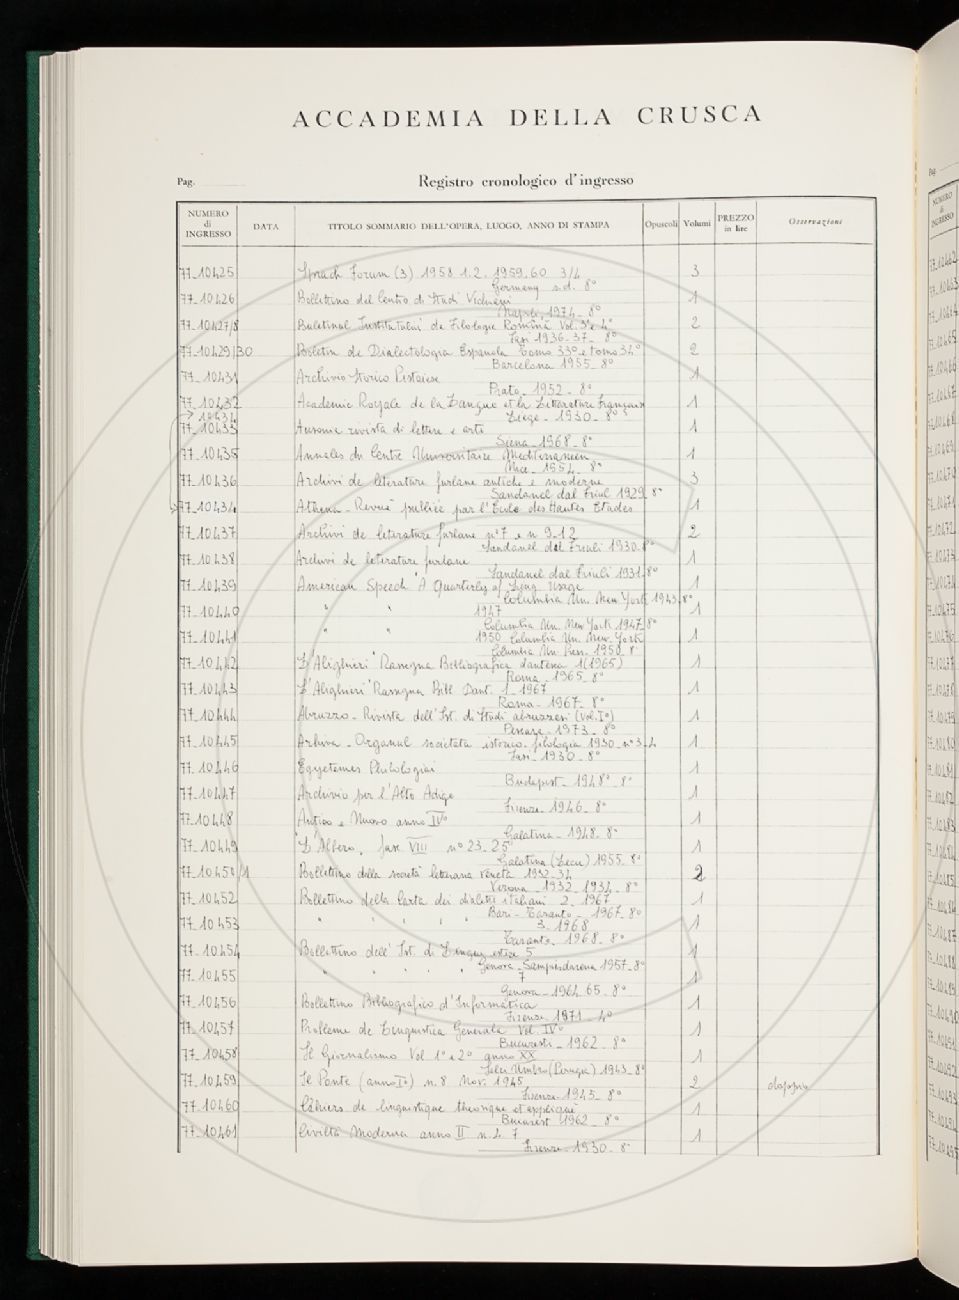 ACCADEMIA DELLA CRUSCA
Pag.
Registro cronologico d'ingresso
NUMERO di INGRESSO DATA TITOLO SOMMARIO DELL'OPERA, LUOGO, ANNO DI STAMPA Opuscoli Volumi PREZZO in lire Osservazioni
77-10425 Sprach Forum (3) 1958 1.2. 1959.60 3/4 3
Germany s.d. 8°
77-10426 Bollettino del Centro di Studi Vichiani 1
Napoli, 1974 - 8°
77-10427/8 Buletinul Institutului de Filologie Română Vol. 3° e 4° 2
Iasi 1936-37 - 8°
77-10429/30 Boletin de Dialectologia Espanola Tomo 33° e tomo 34° 2
Barcelona 1955 - 8°
77-10431 Archivio Storico Pistoiese 1
Prato - 1952 - 8°
77-10432 Academie Royale de la Langue et la Litterature Française 1
10434 Liège - 1930 - 8°
77-10433 Ausonia rivista di lettere e arti 1
Siena - 1968 - 8°
77-10435 Annales du Centre Universitaire Mediterraneen 1
Nice - 1954 - 8°
77-10436 Archivi de literature furlane antiche e moderne 3
Sandanel dal Friul 1929 8°
77-10434 Athena - Revue publiée par l'Ecole des Hautes Etudes 1
77-10437 Archivi de literature furlane n° 7 e n 9-12 2
Sandanel dal Friuli 1930 - 8°
77-10438 Archivi de literature furlane 1
Sandanel dal Friuli 1931 - 8°
77-10439 American Speech "A Quarterly of Ling. Usage 1
Columbia Un. New York 1943 - 8°
77-10440 " " 1947 1
Columbia Un. New York 1947 - 8°
77-10441 " " 1950 Columbia Un. New York 1
Columbia Un. Press. 1950 8°
77-10442 "L'Alighieri" Rassegna Bibliografica dantesca 1 (1965) 1
Roma - 1965 - 8°
77-10443 "L'Alighieri" Rassegna Bibl. Dant. 1 - 1967 1
Roma - 1967 - 8°
77-10444 Abruzzo - Rivista dell'Ist. di Studi abruzzesi (Vol. I°) 1
Pescara - 1973 - 8°
77-10445 Arhiva - Organul societatii istorico-filologia 1930 - n° 3-4 1
Iasi - 1930 - 8°
77-10446 Egyetemes Philologiai 1
Budapest - 1948 - 8°
77-10447 Archivio per l'Alto Adige 1
Firenze - 1946 - 8°
77-10448 Antico e Nuovo anno IV° 1
Galatina - 1948 - 8°
77-10449 "L'Albero", fasc. VIII n° 23-25 1
Galatina (Lecce) 1955 - 8°
77-10450/1 Bollettino della società letteraria veneta 1932-34 2
Verona - 1932 - 1934 - 8°
77-10452 Bollettino della Carta dei dialetti italiani 2 - 1967 1
Bari - Taranto - 1967 - 8°
77-10453 " " " " " 3 - 1968 1
Taranto - 1968 - 8°
77-10454 Bollettino dell'Ist. di Lingue estere 5 1
Genova - Sampierdarena 1957 - 8°
77-10455 " " " " " 7 1
Genova - 1964-65 - 8°
77-10456 Bollettino Bibliografico d'Informatica 1
Firenze - 1971 - 4°
77-10457 Probleme de Lingvistica Generala Vol. IV° 1
Bucuresti - 1962 - 8°
77-10458 Il Giornalismo Vol 1° e 2° anno XX 1
Selci Umbro (Perugia) 1943 - 8°
77-10459 Il Ponte (anno I°) n. 8 Nov. 1945 2 doppio
Firenze - 1945 - 8°
77-10460 Cahiers de linguistique theorique et appliquée 1
Bucarest 1962 - 8°
77-10461 Civiltà Moderna anno II n. 4 7 1
Firenze - 1930 - 8°